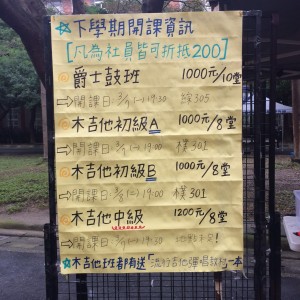 ☆下學期開課資訊
[凡為社員皆可折抵200]
爵士鼓班 1000元/10堂
→開課日: 19:30 305
木吉他初級A 1000元/8堂
→開課日: 19:00 樸301
木吉他初級B 1000元/8堂
→開課日: 19:00 樸301
木吉他中級 1200元/8堂
→開課日: 19:30
☆木吉他班都有送「流行吉他彈唱教程一本